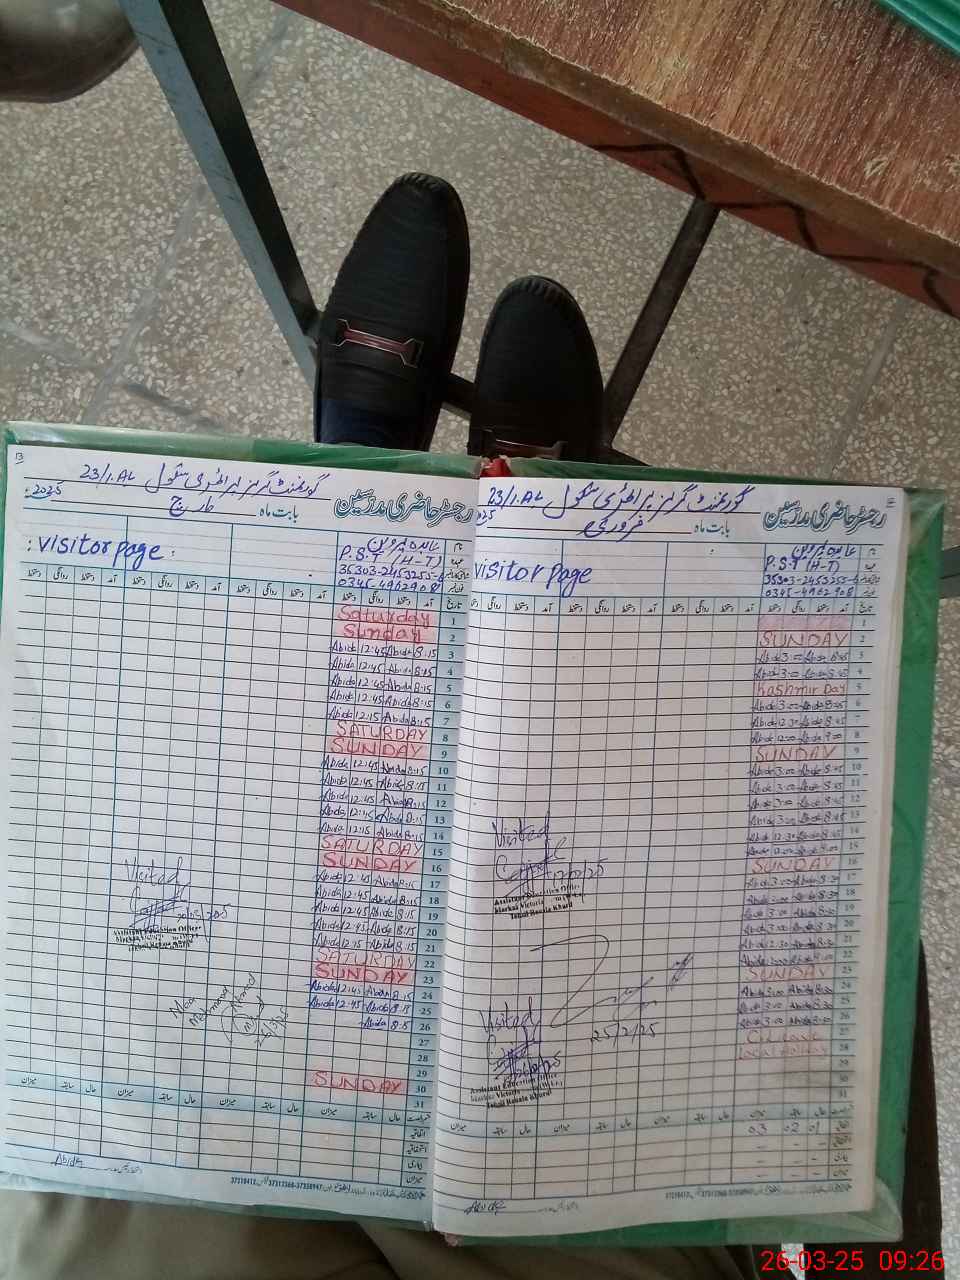 13
رجسٹر حاضری مدرسین
گورنمنٹ گرلز پرائمری سکول 23/1.AL
بابت ماہ مارچ 2025
visitor page
نام عابدہ پروین
عہدہ P.S.T (H-T)
35303-2453255-6
0345-4962908
تاریخ آمد دستخط روانگی دستخط آمد دستخط روانگی دستخط آمد دستخط روانگی دستخط
1 Saturday
2 Sunday
3 8:15 Abida 12:45 Abida
4 8:15 Abida 12:45 Abida
5 8:15 Abida 12:45 Abida
6 8:15 Abida 12:45 Abida
7 8:15 Abida 12:15 Abida
8 SATURDAY
9 SUNDAY
10 8:15 Abida 12:45 Abida
11 8:15 Abida 12:45 Abida
12 8:15 Abida 12:45 Abida
13 8:15 Abida 12:45 Abida
14 8:15 Abida 12:15 Abida
15 SATURDAY
16 SUNDAY
17 8:15 Abida 12:45 Abida
18 8:15 Abida 12:45 Abida
19 8:15 Abida 12:45 Abida
20 8:15 Abida 12:45 Abida
21 8:15 Abida 12:15 Abida
22 SATURDAY
23 SUNDAY
24 8:15 Abida 12:45 Abida
25 8:15 Abida 12:45 Abida
26 8:15 Abida
27
28
29
30 SUNDAY
31
Visited
20/03/2025
Assistant Education Officer
Markaz Victoria
Tehsil Renala Khurd
Mahmood
26/3/25
میزان سابقہ حال میزان سابقہ حال میزان سابقہ حال
اتفاقیہ
استحقاقیہ
بیماری
میزان
Abida
37313366-37358947
رجسٹر حاضری مدرسین
گورنمنٹ گرلز پرائمری سکول 23/1.AL
بابت ماہ فروری
visitor page
نام عابدہ پروین
عہدہ P.S.T (H-T)
35303-2453255-6
0345-4962908
تاریخ آمد دستخط روانگی دستخط آمد دستخط روانگی دستخط آمد دستخط روانگی
1
2 SUNDAY
3 8:45 Abida 3:00 Abida
4 8:45 Abida 3:00 Abida
5 Kashmir Day
6 8:45 Abida 3:00 Abida
7 8:45 Abida 12:30 Abida
8 9:00 Abida 12:00 Abida
9 SUNDAY
10 8:45 Abida 3:00 Abida
11 8:45 Abida 3:00 Abida
12 8:45 Abida 3:00 Abida
13 8:45 Abida 3:00 Abida
14 8:45 Abida 12:30 Abida
15 9:00 Abida 12:00 Abida
16 SUNDAY
17 8:30 Abida 3:00 Abida
18 8:30 Abida 3:00 Abida
19 8:30 Abida 3:00 Abida
20 8:30 Abida 3:00 Abida
21 8:30 Abida 12:30 Abida
22 Abida
23 SUNDAY
24 8:30 Abida 3:00 Abida
25 8:30 Abida 3:00 Abida
26 8:30 Abida 3:00 Abida
27 C. Leave
28 Local Holiday
29
30
31
Visited
Assistant Education Officer
Markaz Victoria
Tehsil Renala Khurd
25/2/25
Visited
Assistant Education Officer
Markaz Victoria
Tehsil Renala Khurd
میزان سابقہ حال میزان سابقہ حال میزان سابقہ حال
اتفاقیہ 01 02 03
استحقاقیہ
بیماری
میزان
37313366-37358947
26-03-25 09:26